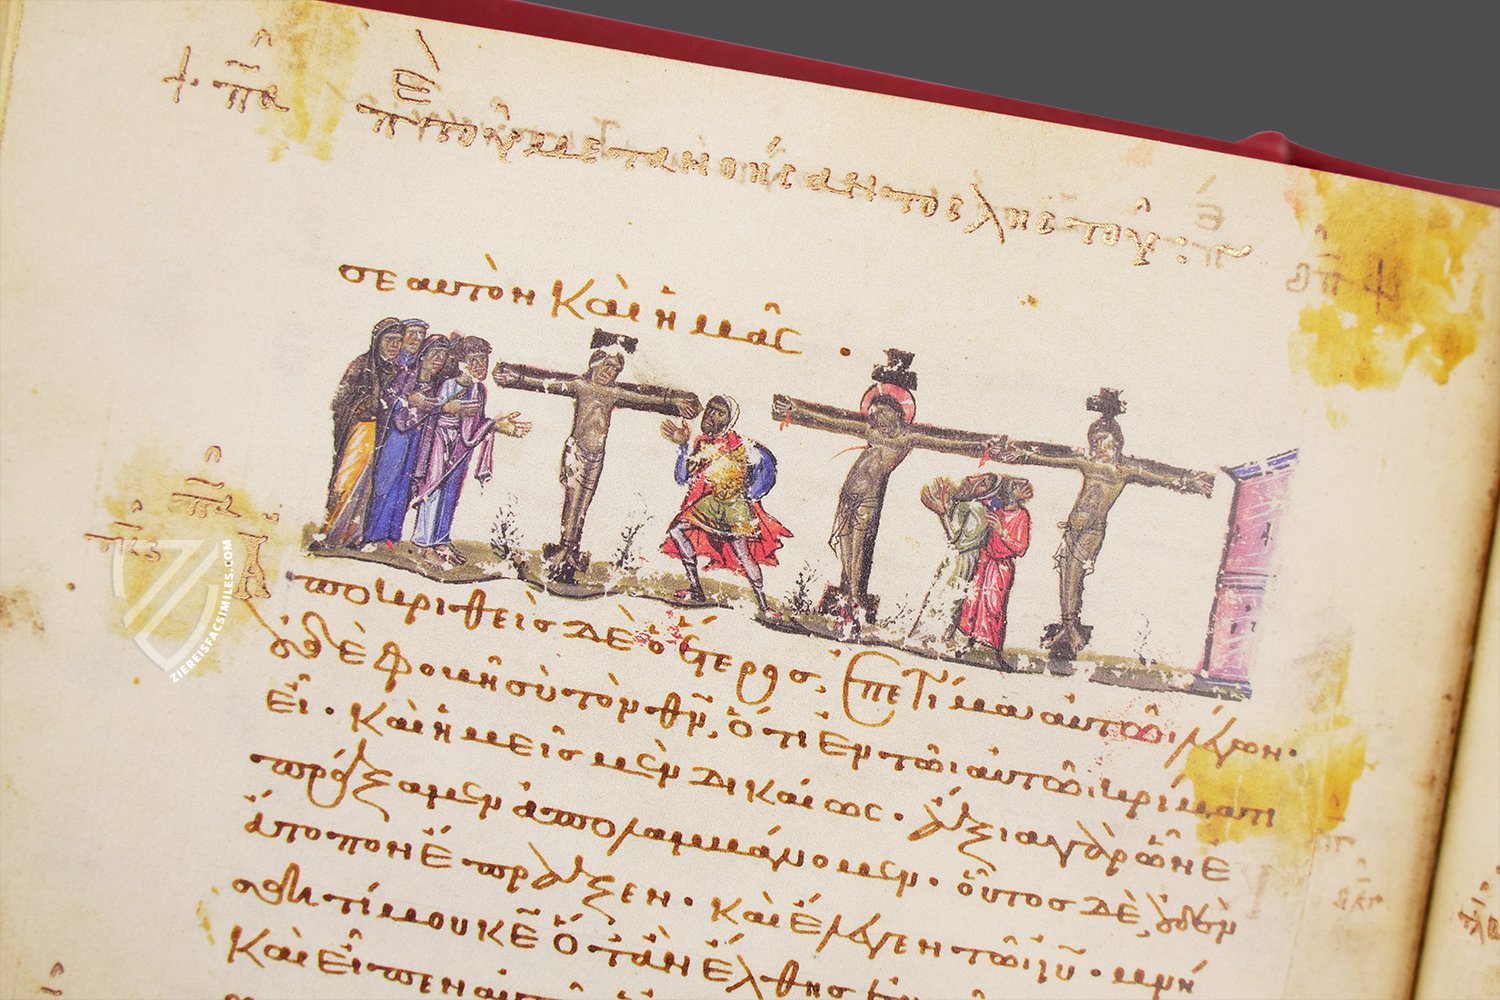 τοῦ μετανοήσαντος ληστοῦ :
σε αυτὸν Καὶ ἡμᾶς .
Ἀποκριθεὶς δὲ ὁ ἕτερος, ἐπετίμα αὐτῶι λέγων·
οὐδὲ φοβῆ σὺ τὸν θν̅, ὅτι ἐν τῶι αὐτῶι κρίματι
εἶ. Καὶ ἡμεῖς μὲν δικαίως. ἄξια γὰρ ὧν ἐ
πράξαμεν ἀπολαμβάνομεν. οὗτος δὲ οὐδὲν
ἄτοπον ἔπραξεν. Καὶ ἔλεγεν τῶι ιυ̅. μνή
σθητί μου κε̅ ὅταν ἔλθης
Καὶ εἶπεν
ZIEREISFACSIMILES.COM